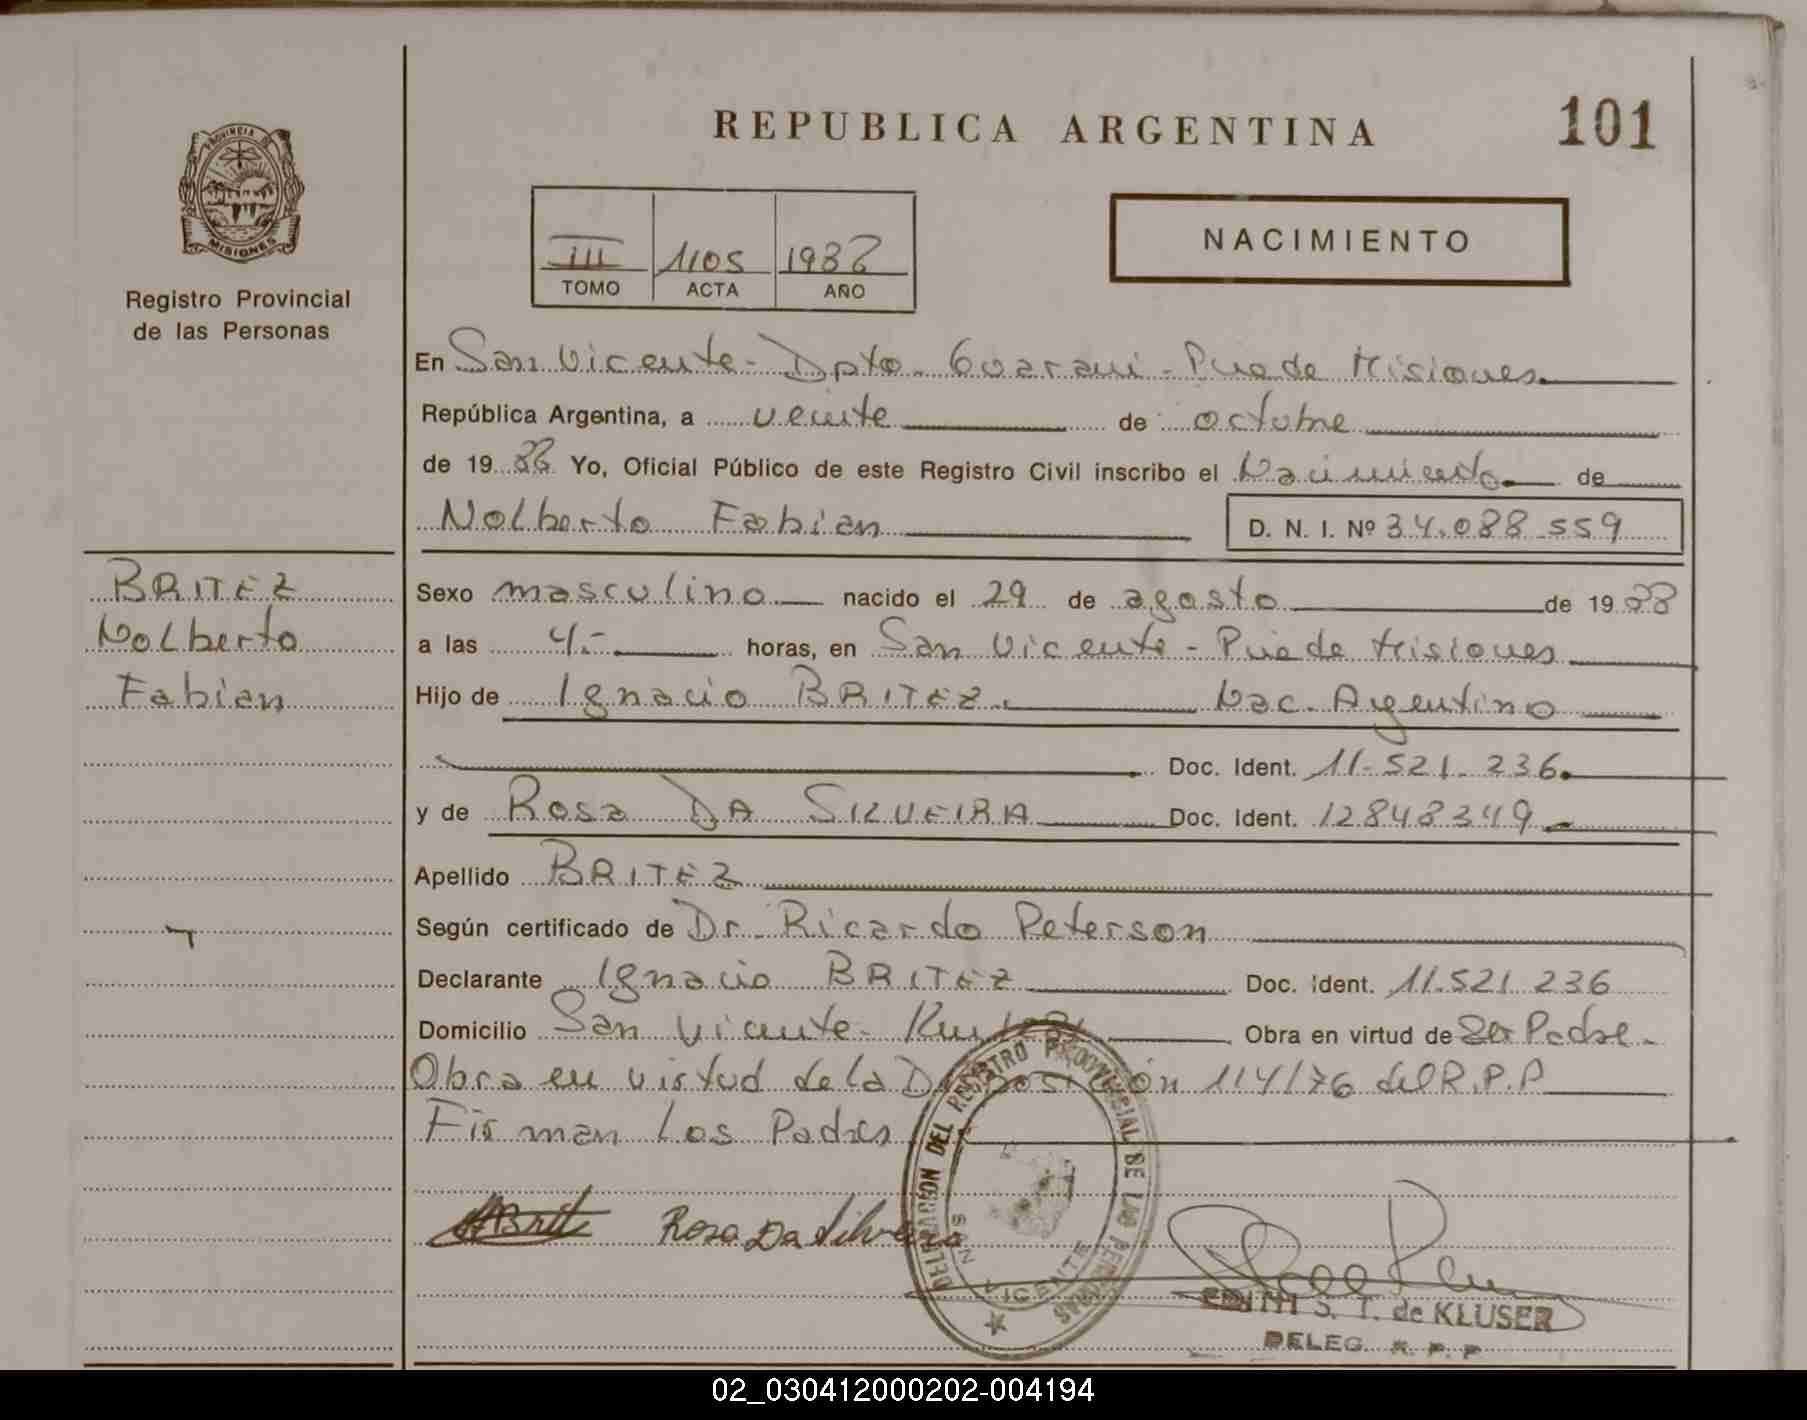 REPUBLICA ARGENTINA
101
PROVINCIA DE
MISIONES
Registro Provincial
de las Personas
III 1105 1988
TOMO ACTA AÑO
NACIMIENTO
En San Vicente - Dpto. Guarani - Pcia de Misiones
República Argentina, a veinte de octubre
de 19 88 Yo, Oficial Público de este Registro Civil inscribo el Nacimiento de
Nolberto Fabian D. N. I. Nº 34.088.559
BRITEZ
Nolberto
Fabian
Sexo masculino nacido el 29 de agosto de 19 88
a las 4.- horas, en San Vicente - Pcia de Misiones
Hijo de Ignacio BRITEZ. Nac. Argentino
Doc. Ident. 11.521.236
y de Rosa DA SILVEIRA Doc. Ident. 12848349
Apellido BRITEZ
Según certificado de Dr. Ricardo Peterson
Declarante Ignacio BRITEZ Doc. Ident. 11.521.236
Domicilio San Vicente - Km Obra en virtud de Ser Padre.
Obra en virtud de la Disposición 114/76 del R.P.P
Firman Los Padres
Rosa Da Silveira
DELEGACION DEL REGISTRO PROVINCIAL DE LAS PERSONAS
SAN VICENTE
EDITH S. T. de KLUSER
DELEG. R. P. P
02_030412000202-004194